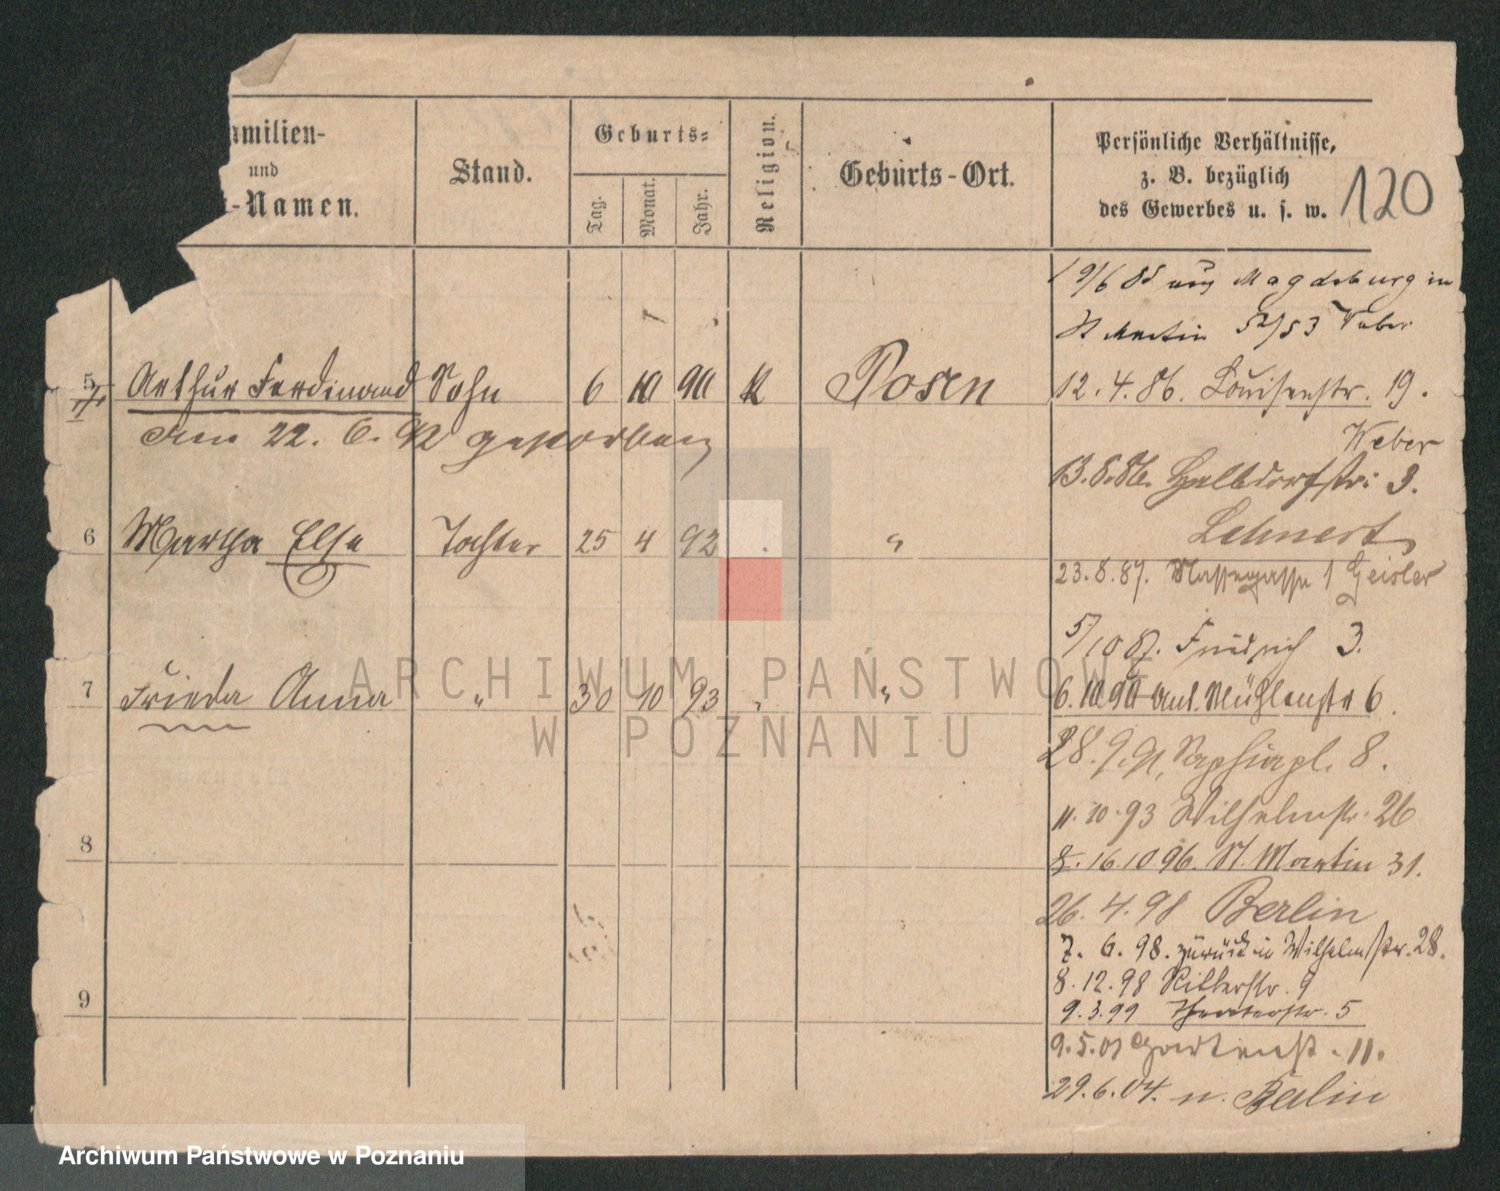 amilien-
und
-Namen.
Stand.
Geburts-
Tag.
Monat.
Jahr.
Religion.
Geburts-Ort.
Persönliche Verhältnisse,
z. B. bezüglich
des Gewerbes u. s. w.
120
9/6 85 aus Magdeburg in
St Martin 52/53 Weber
5 Arthur Ferdinand Sohn 6 10 90 k Posen
12.4.86. Louisenstr. 19.
am 22. 6. 92 gestorben
Weber
13.8.86. Halbdorfstr: 3.
6 Martha Else Tochter 25 4 92 "
Lehnert
23.8.87. Wassergasse 1 Geisler
5/10 87. Friedrich 3.
7 Frieda Anna " 30 10 93 " "
6.10.90 Mühlenstr 6.
28.9.91, Sapiehapl. 8.
11.10.93 Wilhelmstr. 26
8
16.10 96. St. Martin 31.
26.4.98 Berlin
7.6.98. zurück in Wilhelmstr. 28.
8.12.98 Ritterstr. 9
9
9.3.99 Theaterstr. 5
9.5.01 Gartenstr. 11.
29.6.04. n. Berlin
ARCHIWUM PAŃSTWOWE
W POZNANIU
Archiwum Państwowe w Poznaniu